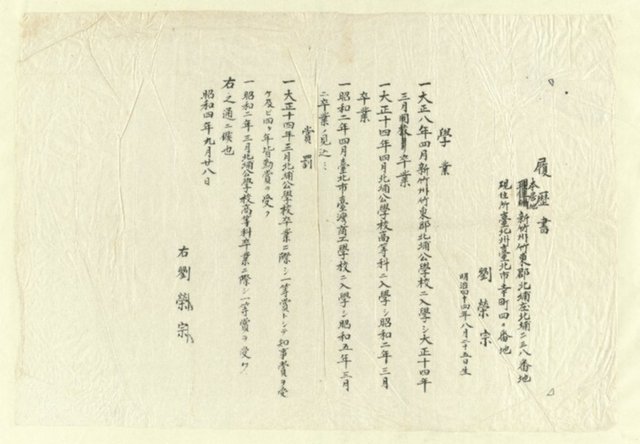 履歴書
本籍地 新竹州竹東郡北埔庄北埔二三八番地
現住所 臺北州臺北市幸町四ノ番地
劉榮宗
明治四十四年八月二十五日生
學業
一大正八年四月新竹州竹東郡北埔公學校ニ入學シ大正十四年
三月同校卒業
一大正十四年四月北埔公學校高等科ニ入學シ昭和二年三月
卒業
一昭和二年四月臺北市臺灣商工學校ニ入學シ昭和五年三月
ニ卒業ノ見込
賞罰
一大正十四年三月北埔公學校卒業ニ際シ一等賞トシテ知事賞ヲ受
ケ及ビ四ヶ年皆勤賞ヲ受ク
一昭和二年三月北埔公學校高等科卒業ニ際シ一等賞ヲ受ク
右之通ニ候也
昭和四年九月廿八日
右劉榮宗